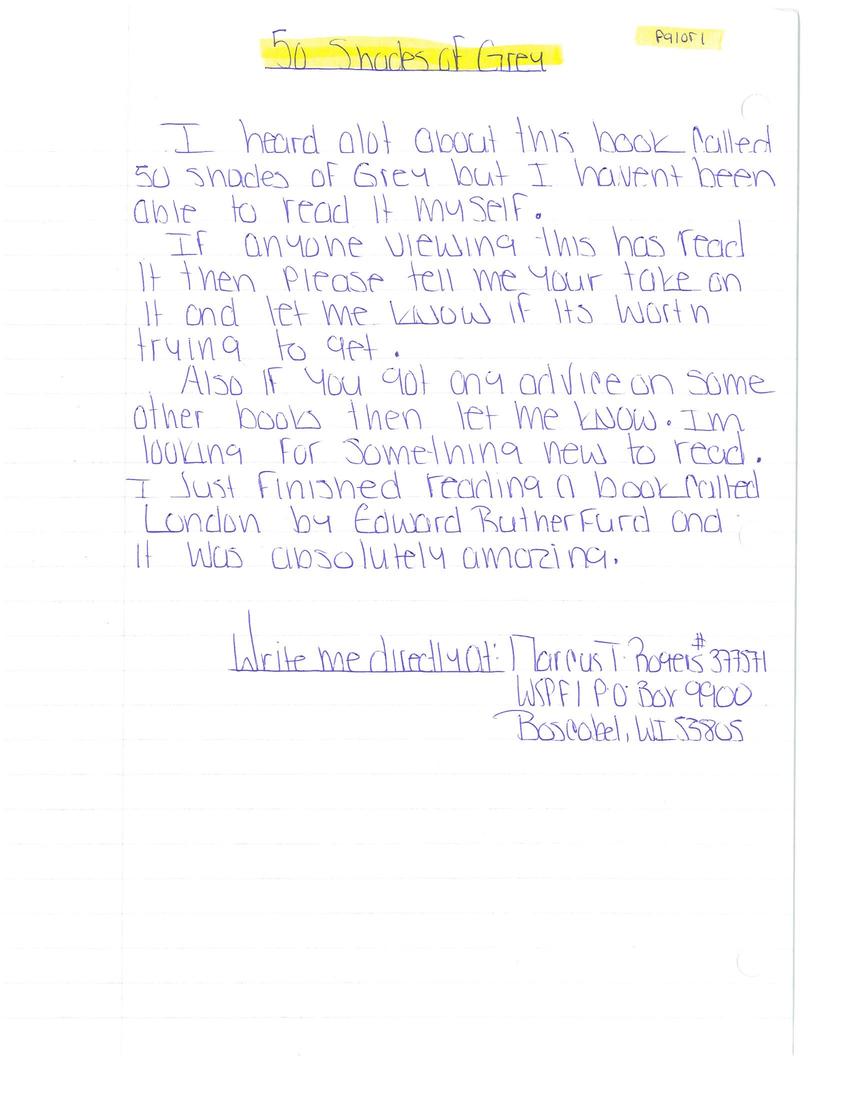 50 Shades of Grey
Pg 1 OF 1
I heard alot about this book called
50 shades of Grey but I havent been
able to read It myself.
IF anyone viewing this has read
It then please tell me your take on
It and let me know if Its worth
trying to get.
Also IF you got any advice on some
other books then let me know. Im
looking For something new to read.
I Just Finished reading a book called
London by Edward RutherFurd and
It was absolutely amazing.
Write me directly at: Marcus T. Rogers #377571
WSPF / P.O. Box 9900
Boscobel, WI 53805